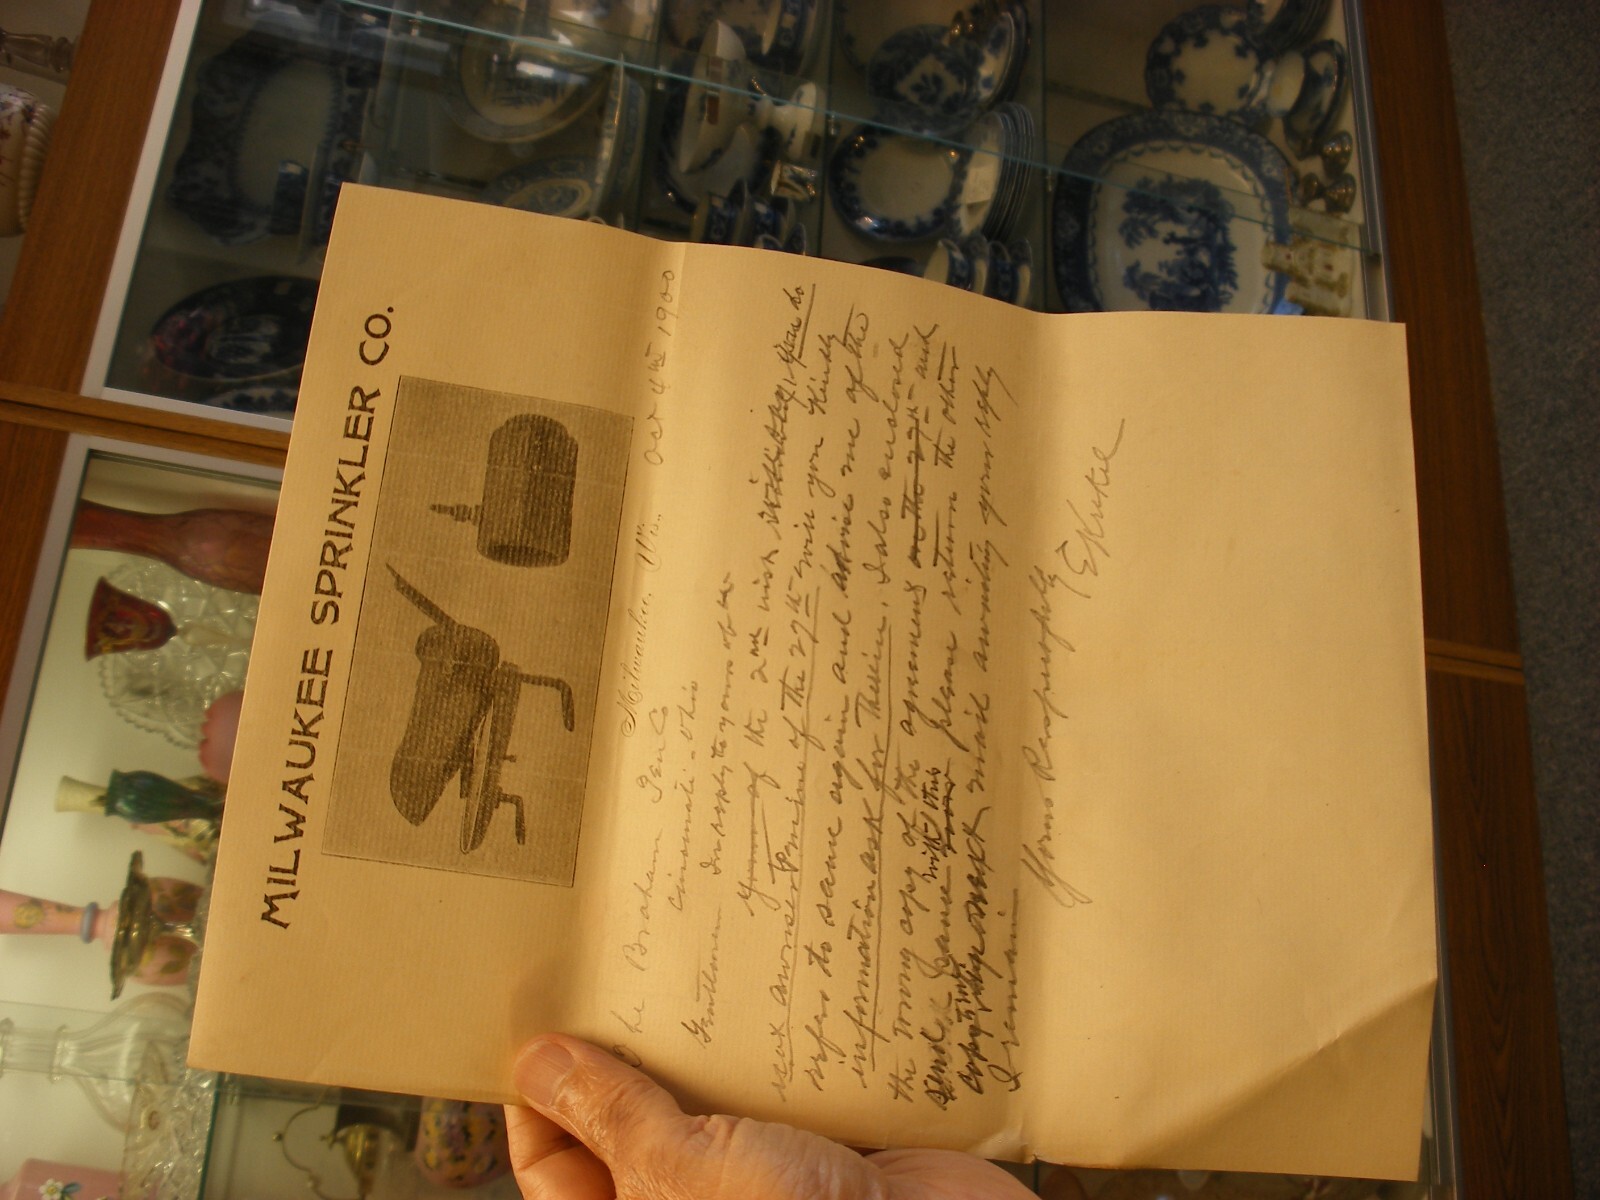 MILWAUKEE SPRINKLER CO.
Milwaukee, Wis., Oct 4th 1900
The Braham Pen Co
Cincinnati - Ohio
Gentlemen In reply to yours of
of the 2nd inst
answer to mine of the 27th given you kindly
refer to same again and advise me of the
information ask for therein, I also enclosed
the wrong copy of the agreement on the 27th and
send same with this please return the other
copy and await awaiting your reply
I remain
Yours Respectfully
E Krekel